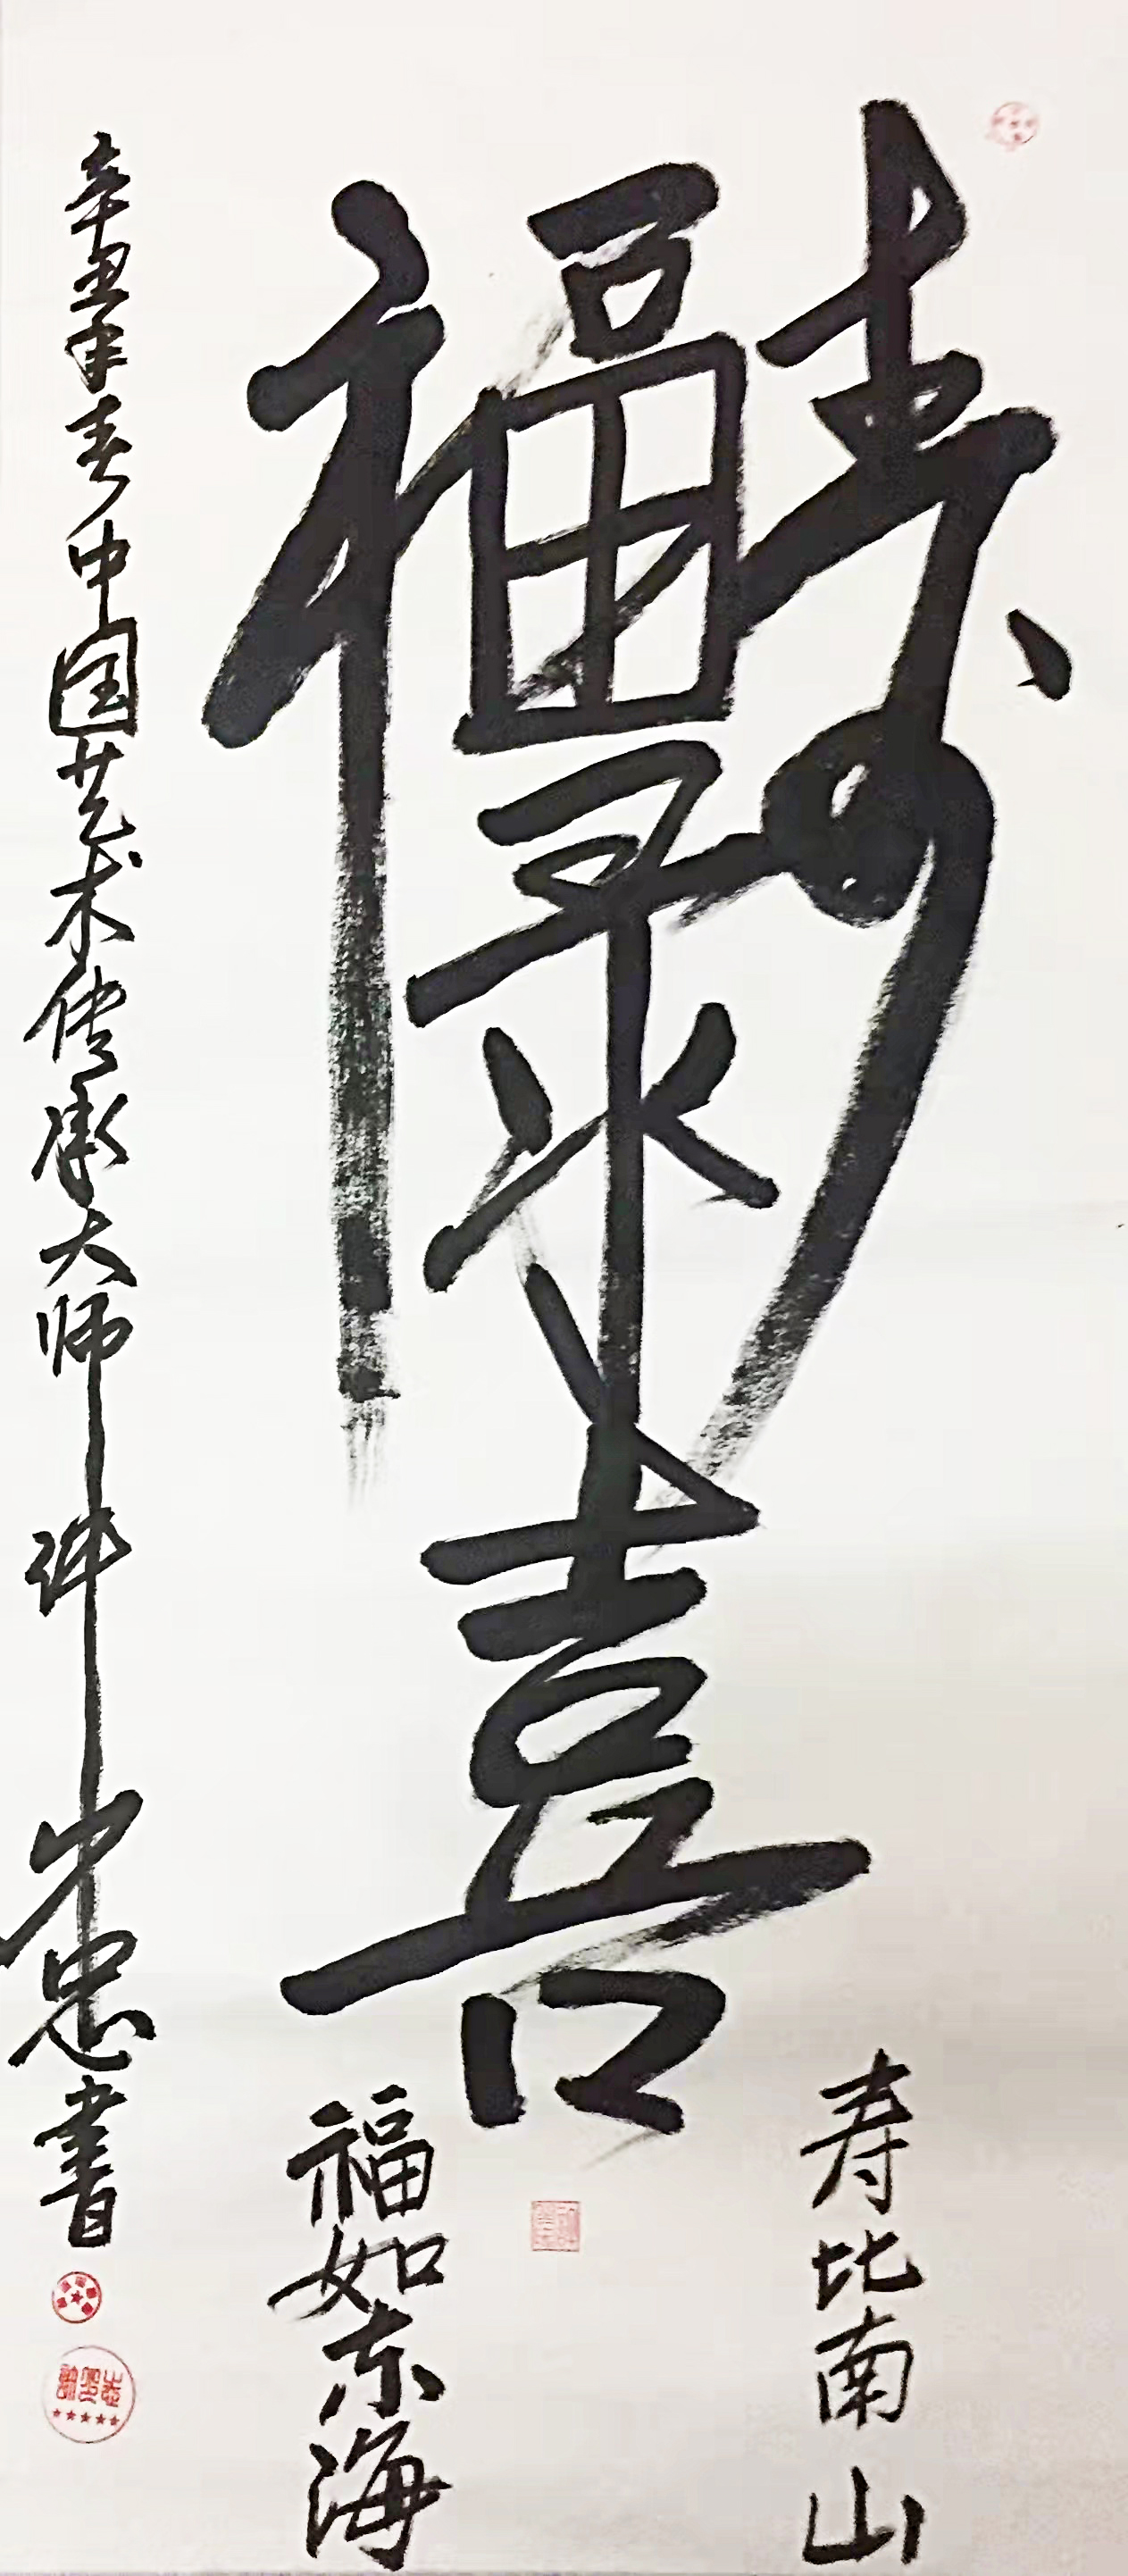 福禄寿喜
寿比南山
福如东海
辛丑年春中国艺术传承大师许少忠書